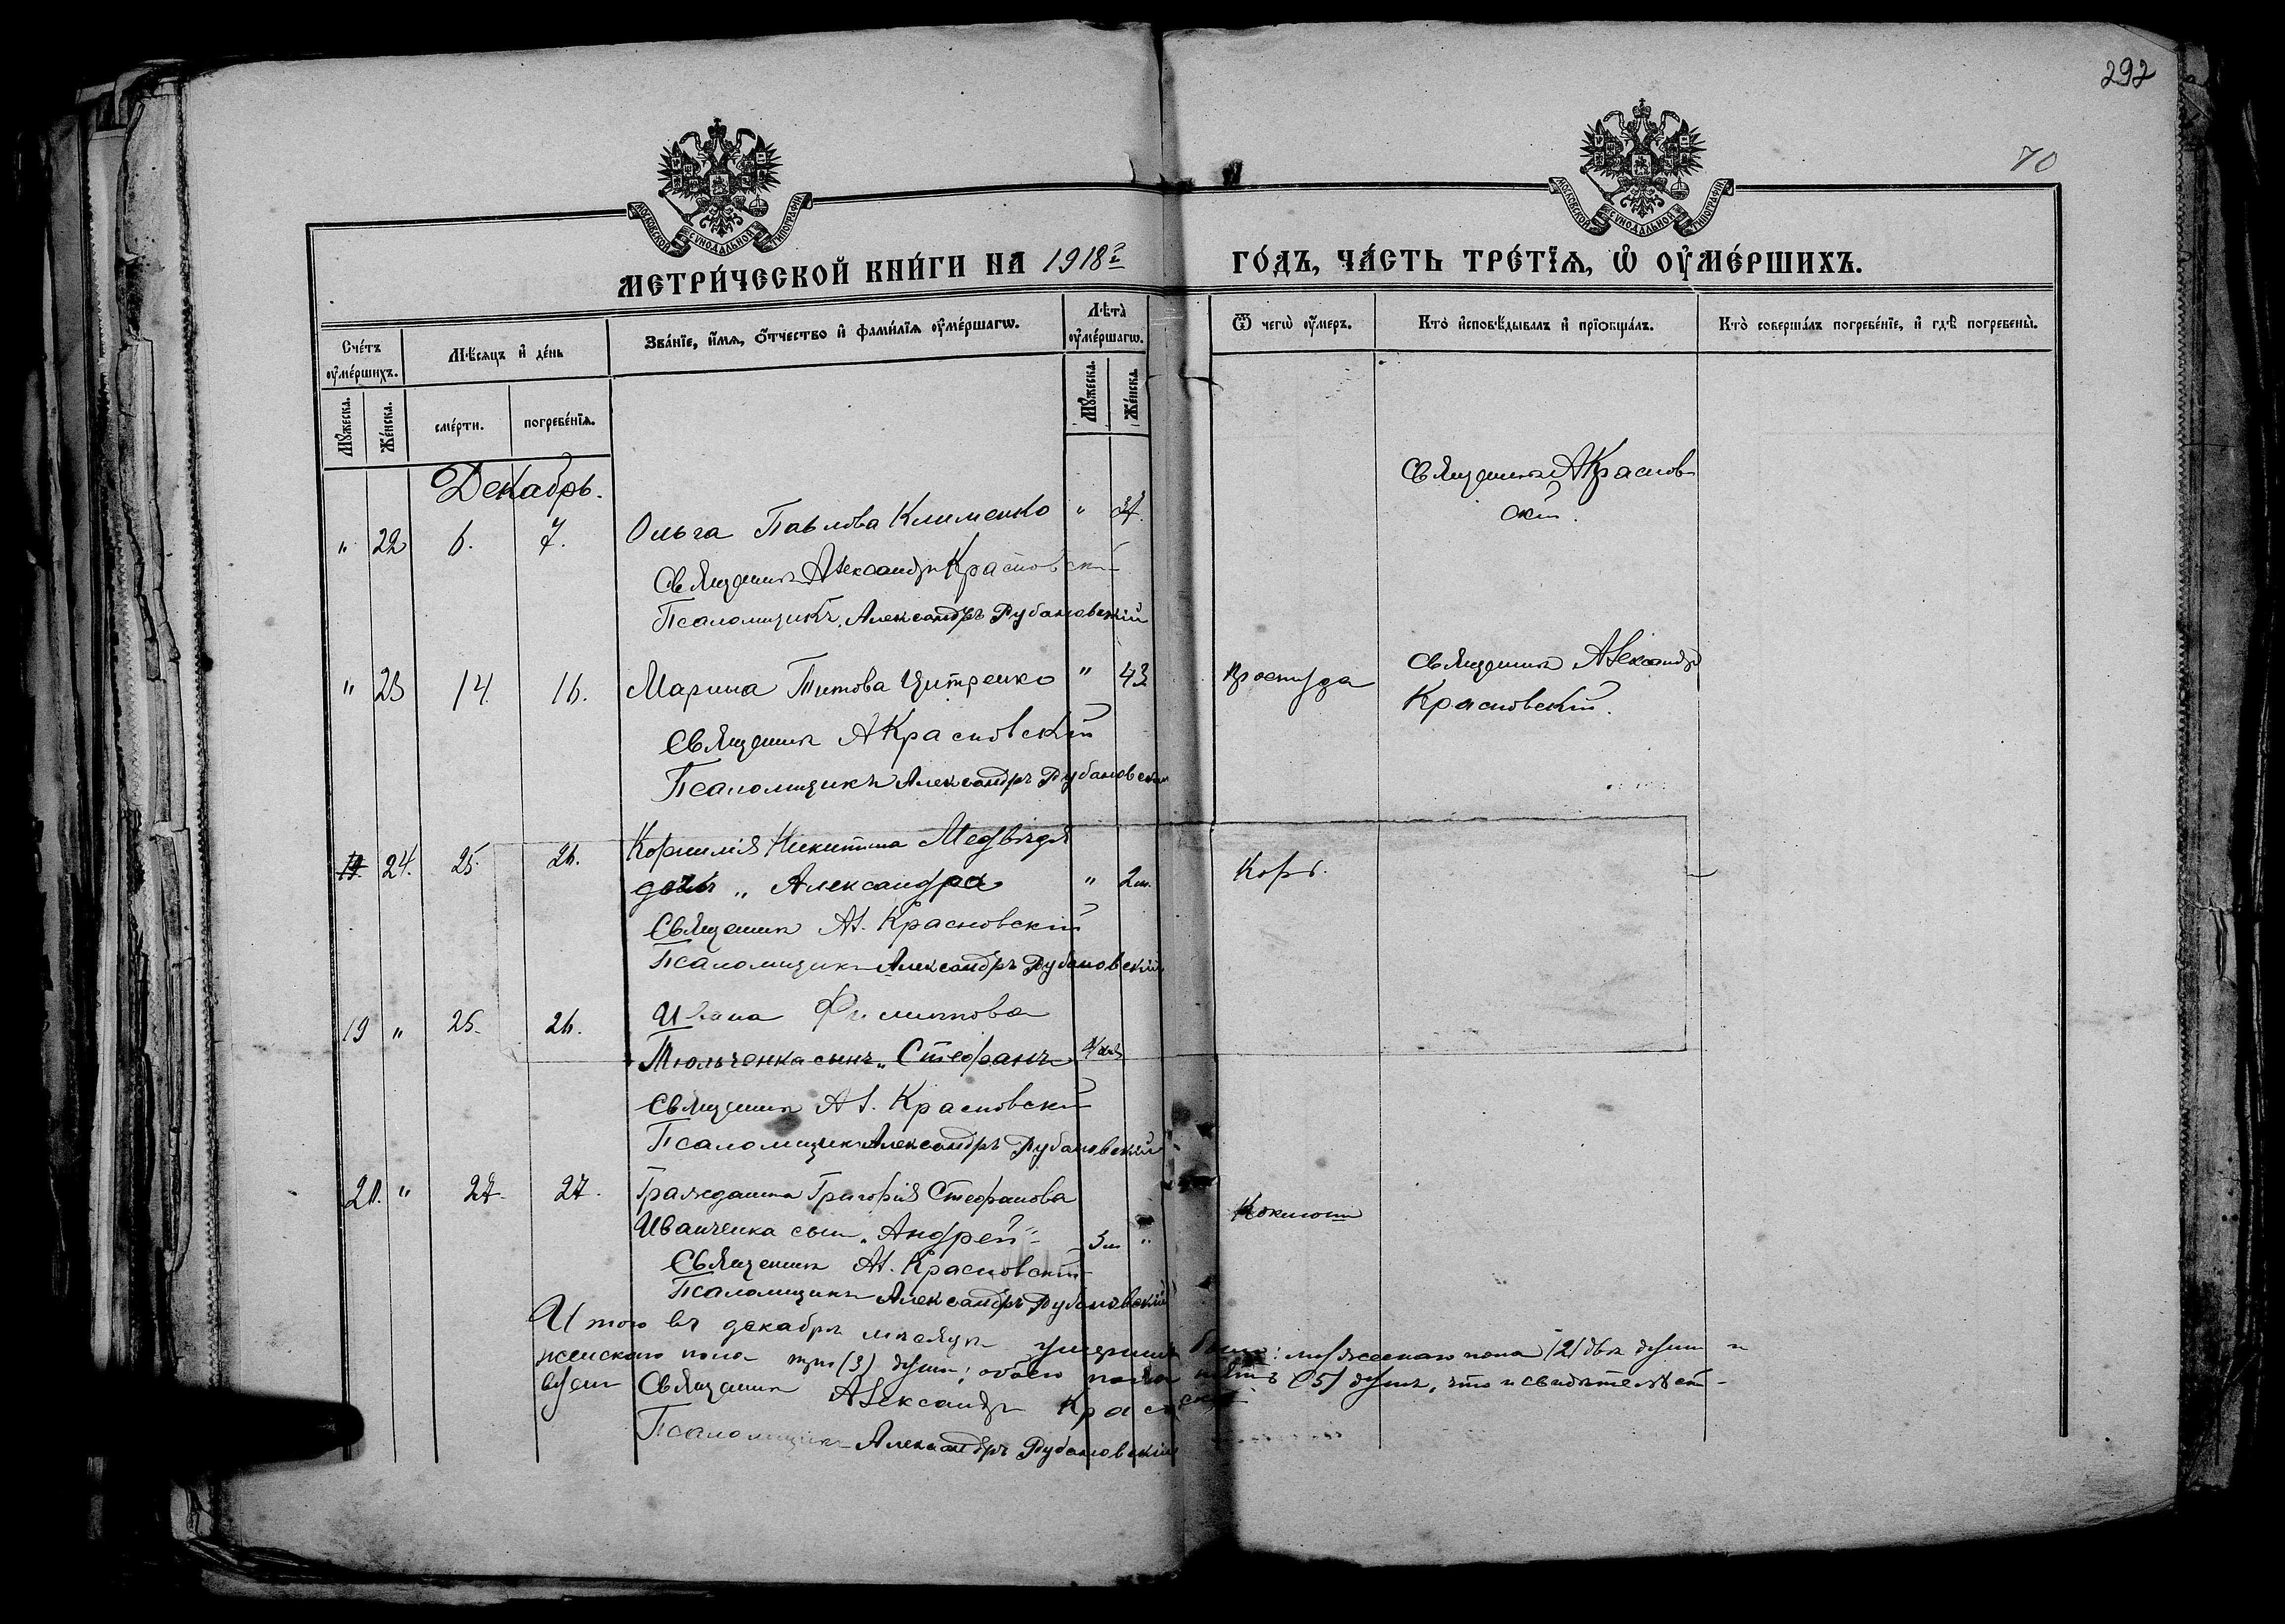 292
70
МОСКОВСКОЙ СѴНОДАЛЬНОЙ ТИПОГРАФІИ
МОСКОВСКОЙ СѴНОДАЛЬНОЙ ТИПОГРАФІИ
МЕТРИ́ЧЕСКОЙ КНИ́ГИ НА 1918 г. ГО́ДЪ, ЧА́СТЬ ТРЕ́ТЇѦ, Ѡ҆ ОУ҆МЕ́РШИХЪ.
Сче́тъ оу҆ме́ршихъ.
Мꙋ́жеска.
Же́нска.
Мѣ́сѧцъ и҆ де́нь
сме́рти.
погребе́нїѧ.
Зва́нїе, и҆́мѧ, ѻ҆́тчество и҆ фами́лїѧ оу҆ме́ршагѡ.
Лѣ́та̀ оу҆ме́ршагѡ.
Мꙋ́жеска.
Же́нска.
Ѿ чегѡ̀ оу҆́меръ.
Кто̀ и҆сповѣ́дывалъ и҆ прїѡбща́лъ.
Кто̀ соверша́лъ погребе́нїе, и҆ гдѣ̀ погребены̀.
Декабрь.
" 22 6. 7. Ольга Павлова Клименко "
Священникъ А Краснов-
скій.
Священникъ Александръ Красновскій
Псаломщикъ Александръ Рубановскій
" 23 14. 16. Марина Титова " 43 Простуда
Священникъ Александръ
Красновскій.
Священникъ А Красновскій
Псаломщикъ Александръ Рубановскій
19. 24. 25. 26. Корнилія Никитина Медвѣдя
дочь „Александра " 2 м. Корь.
Священникъ Ал. Красновскій
Псаломщикъ Александръ Рубановскій
19 " 25. 26. Ивана Филиппова
Тюльченка сынъ „Стефанъ
Священникъ Ал. Красновскій
Псаломщикъ Александръ Рубановскій
20. " 27. 27. Гражданина Григорія Стефанова
Иванченка сынъ „Андрей" 3 м "
Священникъ Ал. Красновскій
Псаломщикъ Александръ Рубановскій
Итого въ декабрѣ мѣсяцѣ умершихъ было: мужескаго пола (2) двѣ души и
женскаго пола три (3) души; обоего пола пять (5) душъ, что и свидѣтельст-
вуемъ Священникъ Александръ Красновскій
Псаломщикъ Александръ Рубановскій